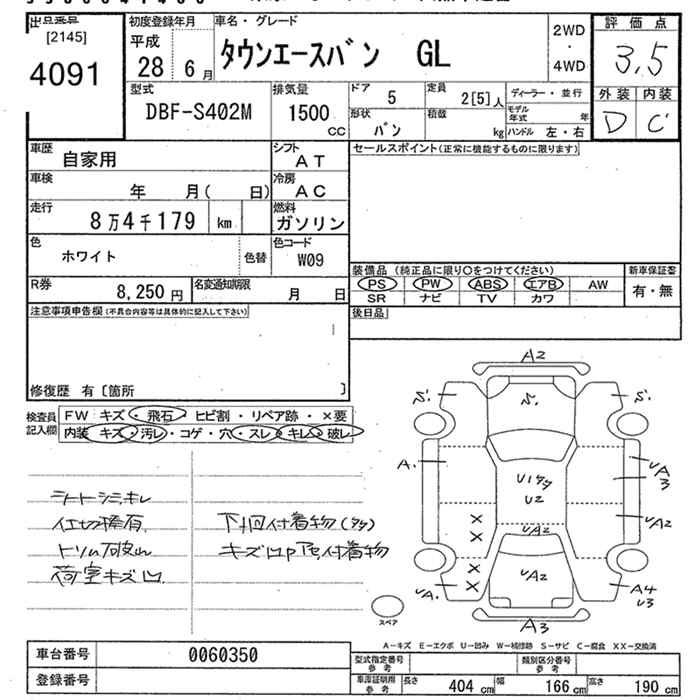 [2145]
4091
初度登録年月
平成
28 6 月
車名・グレード
タウンエースバン GL
2WD
・
4WD
評価点
3,5
外装 内装
D C
型式
DBF-S402M
排気量
1500
CC
ドア 5
定員 2[5]人
ディーラー・並行
形状 バン
積載 kg
モデル年式 年
ハンドル 左・右
車歴 自家用
シフト AT
車検 年 月( 日)
冷房 AC
走行 8万4千179 km
燃料 ガソリン
色 ホワイト
色替
色コード W09
R券 8,250円
名変通知期限 月 日
セールスポイント(正常に機能するものに限ります)
装備品 (純正品に限り○をつけてください)
新車保証書
PS PW ABS エアB AW
有・無
SR ナビ TV カワ
後日品
注意事項申告欄(不具合内容等は具体的に記入して下さい)
修復歴 有 [箇所 ]
検査員
記入欄
FW キズ・飛石・ヒビ割・リペア跡・×要
内装 キズ・汚レ・コゲ・穴・スレ・キレ・破レ
シートシミ,キレ
下回付着物(タク)
荷室キズ凹
A2
S. S. S.
A.
U1タタ
U2
UA3
UA2
UA2
× × × ×
UA2
UA.
A4
U3
A3
スペア
A-キズ E-エクボ U-凹み W-補修跡 S-サビ C-腐食 XX-交換済
車台番号 0060350
登録番号
型式指定番号
参考
類別区分番号
参考
車庫証明用
参考
長さ 404 cm 幅 166 cm 高さ 190 cm